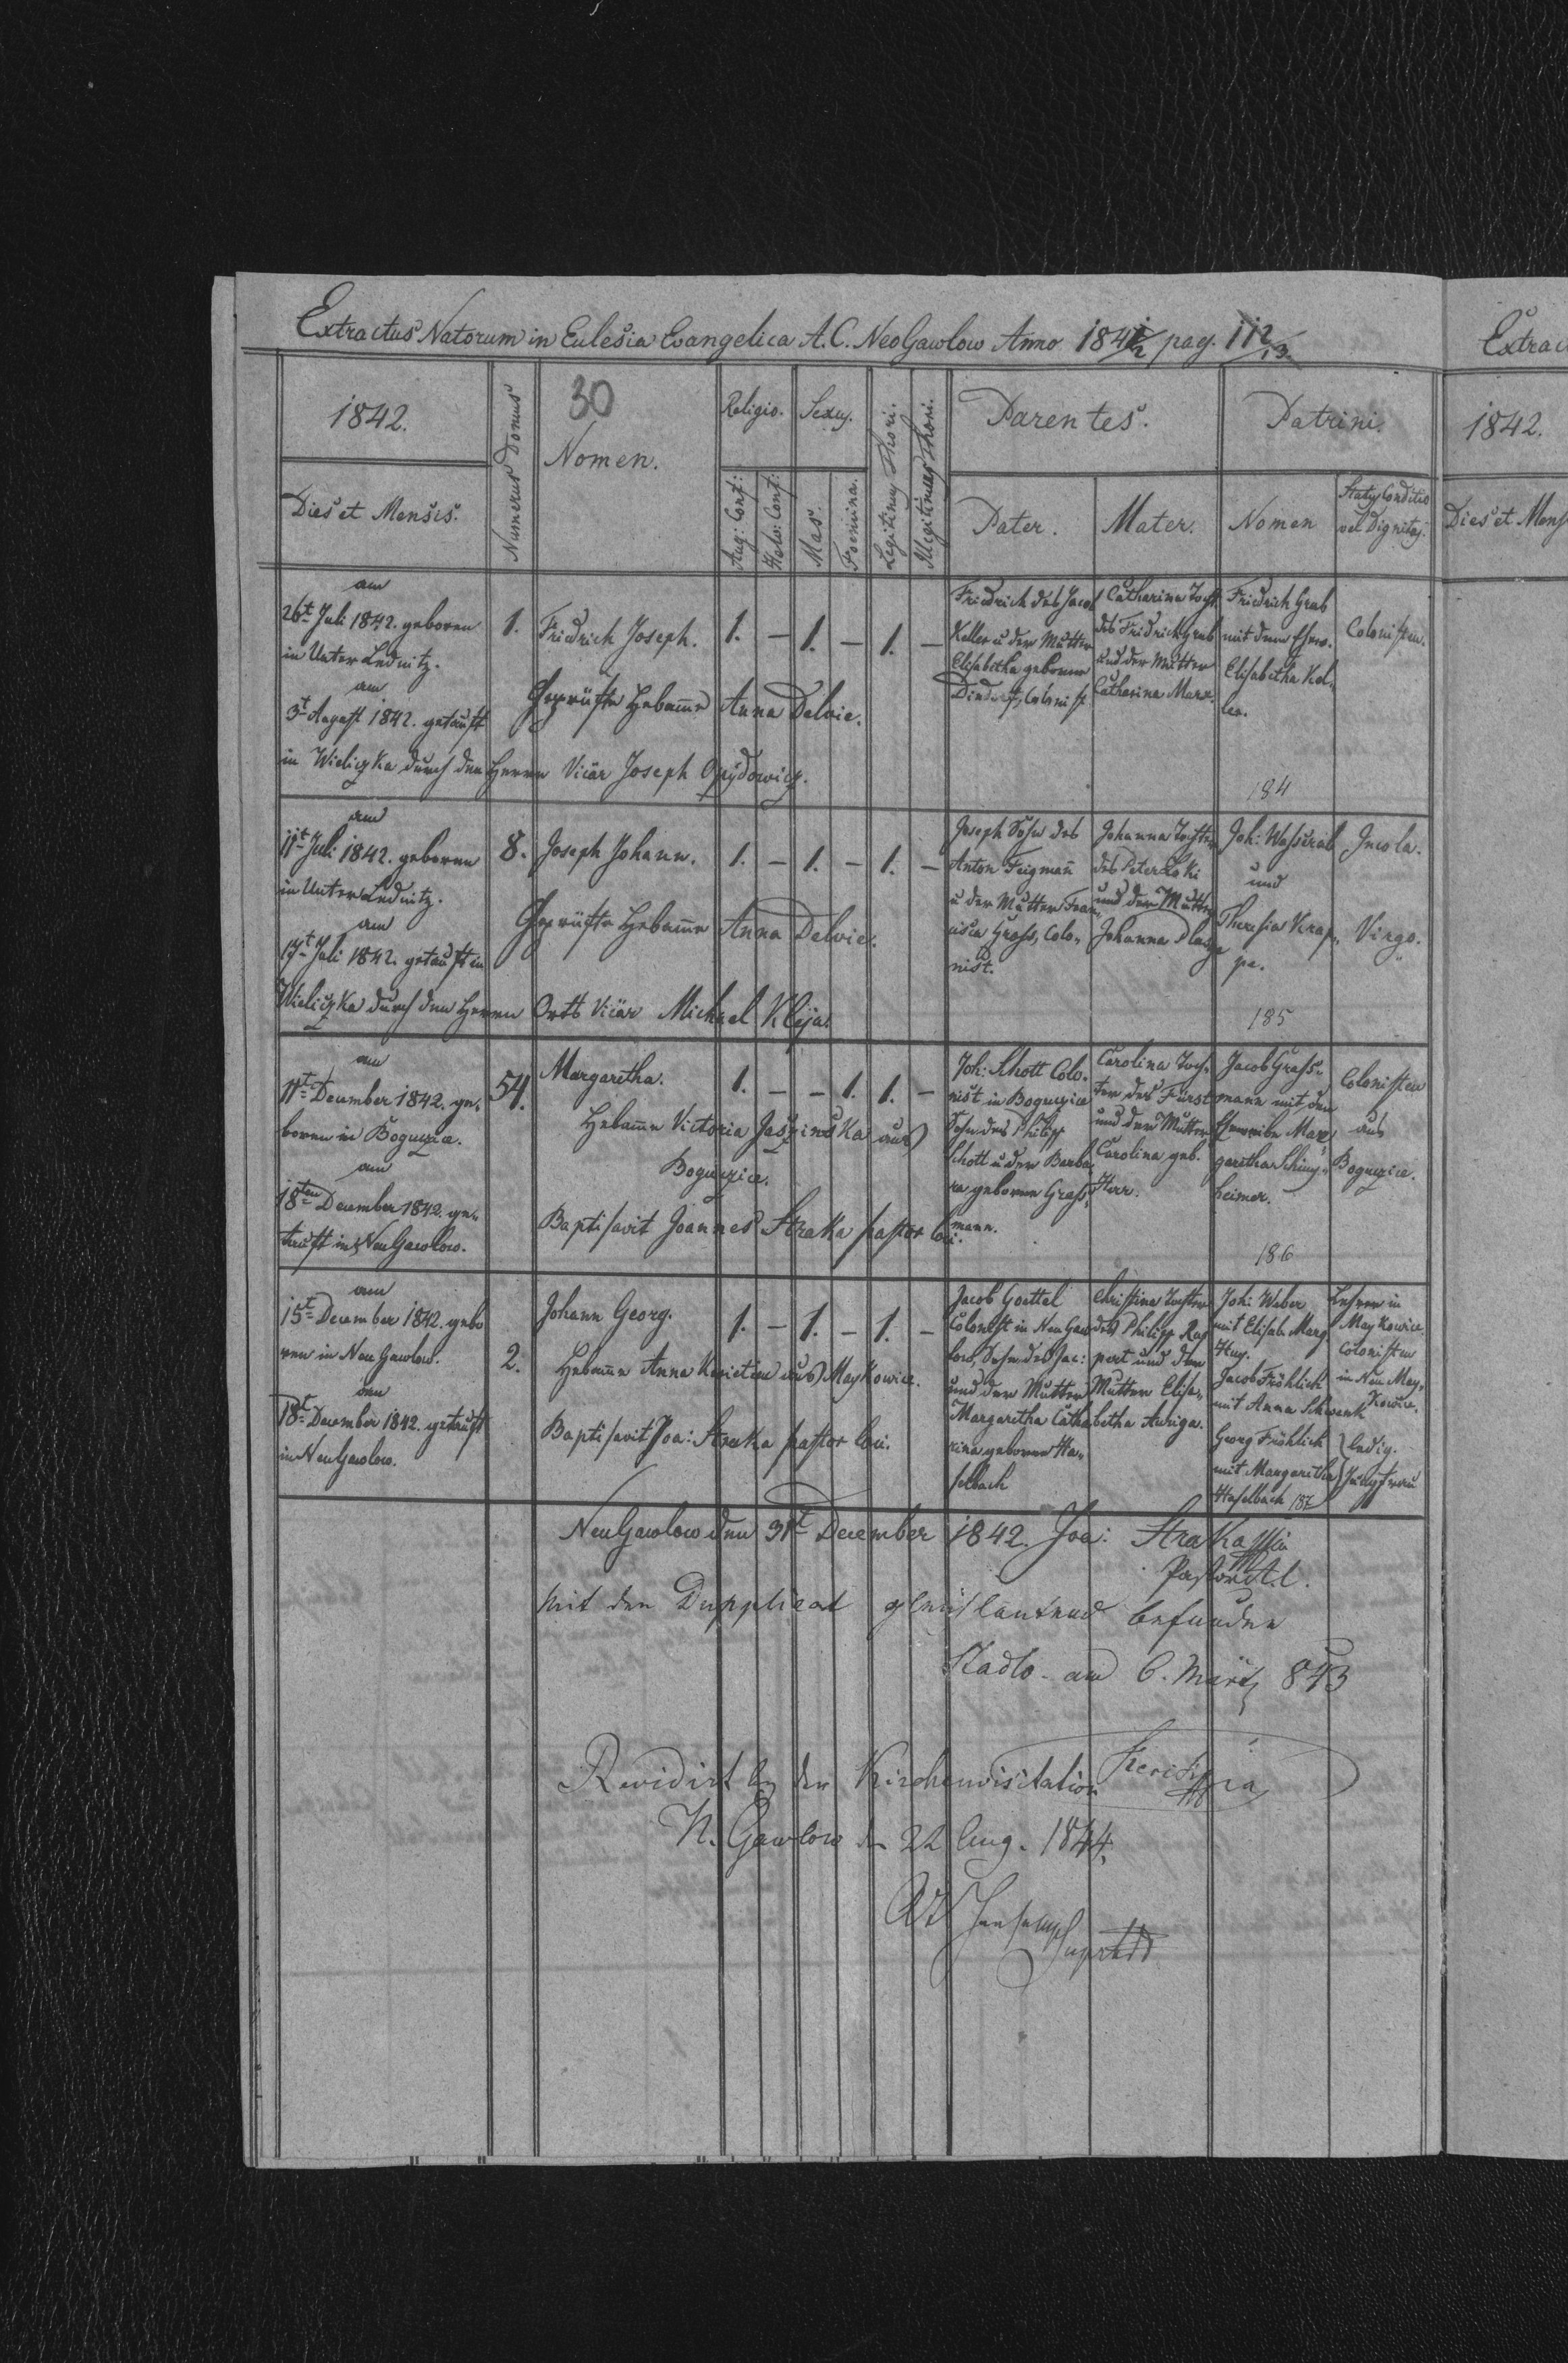 Extractus Natorum in Eclesia Evangelica A.C. NeoGawlow Anno 1842 pag. 112/13.
Extrac
1842.
Numerus Domus
30
Nomen.
Religio.
Sexus.
Legitimus Thori.
Illegitimus Thori.
Parentes.
Patrini.
1842.
Dies et Mensis.
Aug: Conf:
Helv: Conf:
Mas.
Foemina.
Pater.
Mater.
Nomen
Status Conditio
vel Dignitas.
Dies et Mens
am
26t Juli 1842. geboren
in Unter Lednitz.
am
3t August 1842. getauft
in Wieliczka durch den Herrn Vicär Joseph Opydowicz.
1.
Friedrich Joseph.
Geprüfte Hebamme Anna Delvie.
1. – 1. – 1. –
Friedrich des Jacob
Keller u der Mutter
Elisabetha geborene
Dindorf, Colonist
Catharina Tocht
des Fridrich Grub
und der Mutter
Catharina Marx.
Friedrich Grub
mit dem Ehew.
Elisabetha Kel,
ler.
Colonisten.
184
am
11t Juli 1842. geboren
in Unter Lednitz.
am
17t Juli 1842. getauft in
Wieliczka durch den Herren Orts Vicär Michael Kleja.
8.
Joseph Johann.
Geprüfte Hebamme Anna Delvie.
1. – 1. – 1. –
Joseph Sohn des
Anton Feigmann
u der Mutter Fran,
cisca Grass, Colo,
nist.
Johanna Tochter
des Peter Loki
und der Mutter
Johanna
Joh: Wasserab
und
Theresia Krap,
pa.
Jncola.
Virgo.
185
am
11t December 1842. ge,
boren in Bogucice.
am
18ten December 1842. ge,
tauft in Neu Gawlow.
54.
Margaretha.
Hebamme Victoria Jaszinska aus
Bogucice.
Baptisavit Joannes Straka pastor loci.
1. – – 1. 1. –
Joh: Schott Colo,
nist in Bogucice
Sohn des Philipp
Schott u der Barba,
ra geborene Grass,
mann.
Carolina Toch,
ter des Fürst
und der Mutter
Carolina geb.
Herr.
Jacob Grass,
mann mit dem
Eheweibe Mar,
garetha Schmy,
heimer.
Colonisten
aus
Bogucice.
186
am
15t December 1842. gebo
ren in Neu Gawlow.
am
18t December 1842. getauft
in NeuGawlow.
2.
Johann Georg.
Hebamme Anna aus Maykowice.
Baptisavit Joa: Straka pastor loci.
1. – 1. – 1. –
Jacob Goettel
Colonist in Neu Gaw
low, Sohn des Jac:
und der Mutter
Margaretha Catha
rina geborene Ha,
selbach
Christina Tochter
des Philipp Rup
pert und der
Mutter Elisa,
betha Auriga.
Joh: Weber
mit Elisab. Marg
Hug.
Jacob Fröhlich
mit Anna Schwenk
Georg Fröhlich
mit Margaretha
Haselbach 187
Lehrer in
Maykowice.
Colonisten
in Neu May,
kowice.
ledig.
Jungfrau
NeuGawlow den 31t December 1842. Joa: Straka
Pastor A.C.
Mit den Dupplicat gleichlautend befunden
Stadlo am 6. März 843
Revidirt by der Kirchenvisitation
N. Gawlow den 22 Aug. 1844.